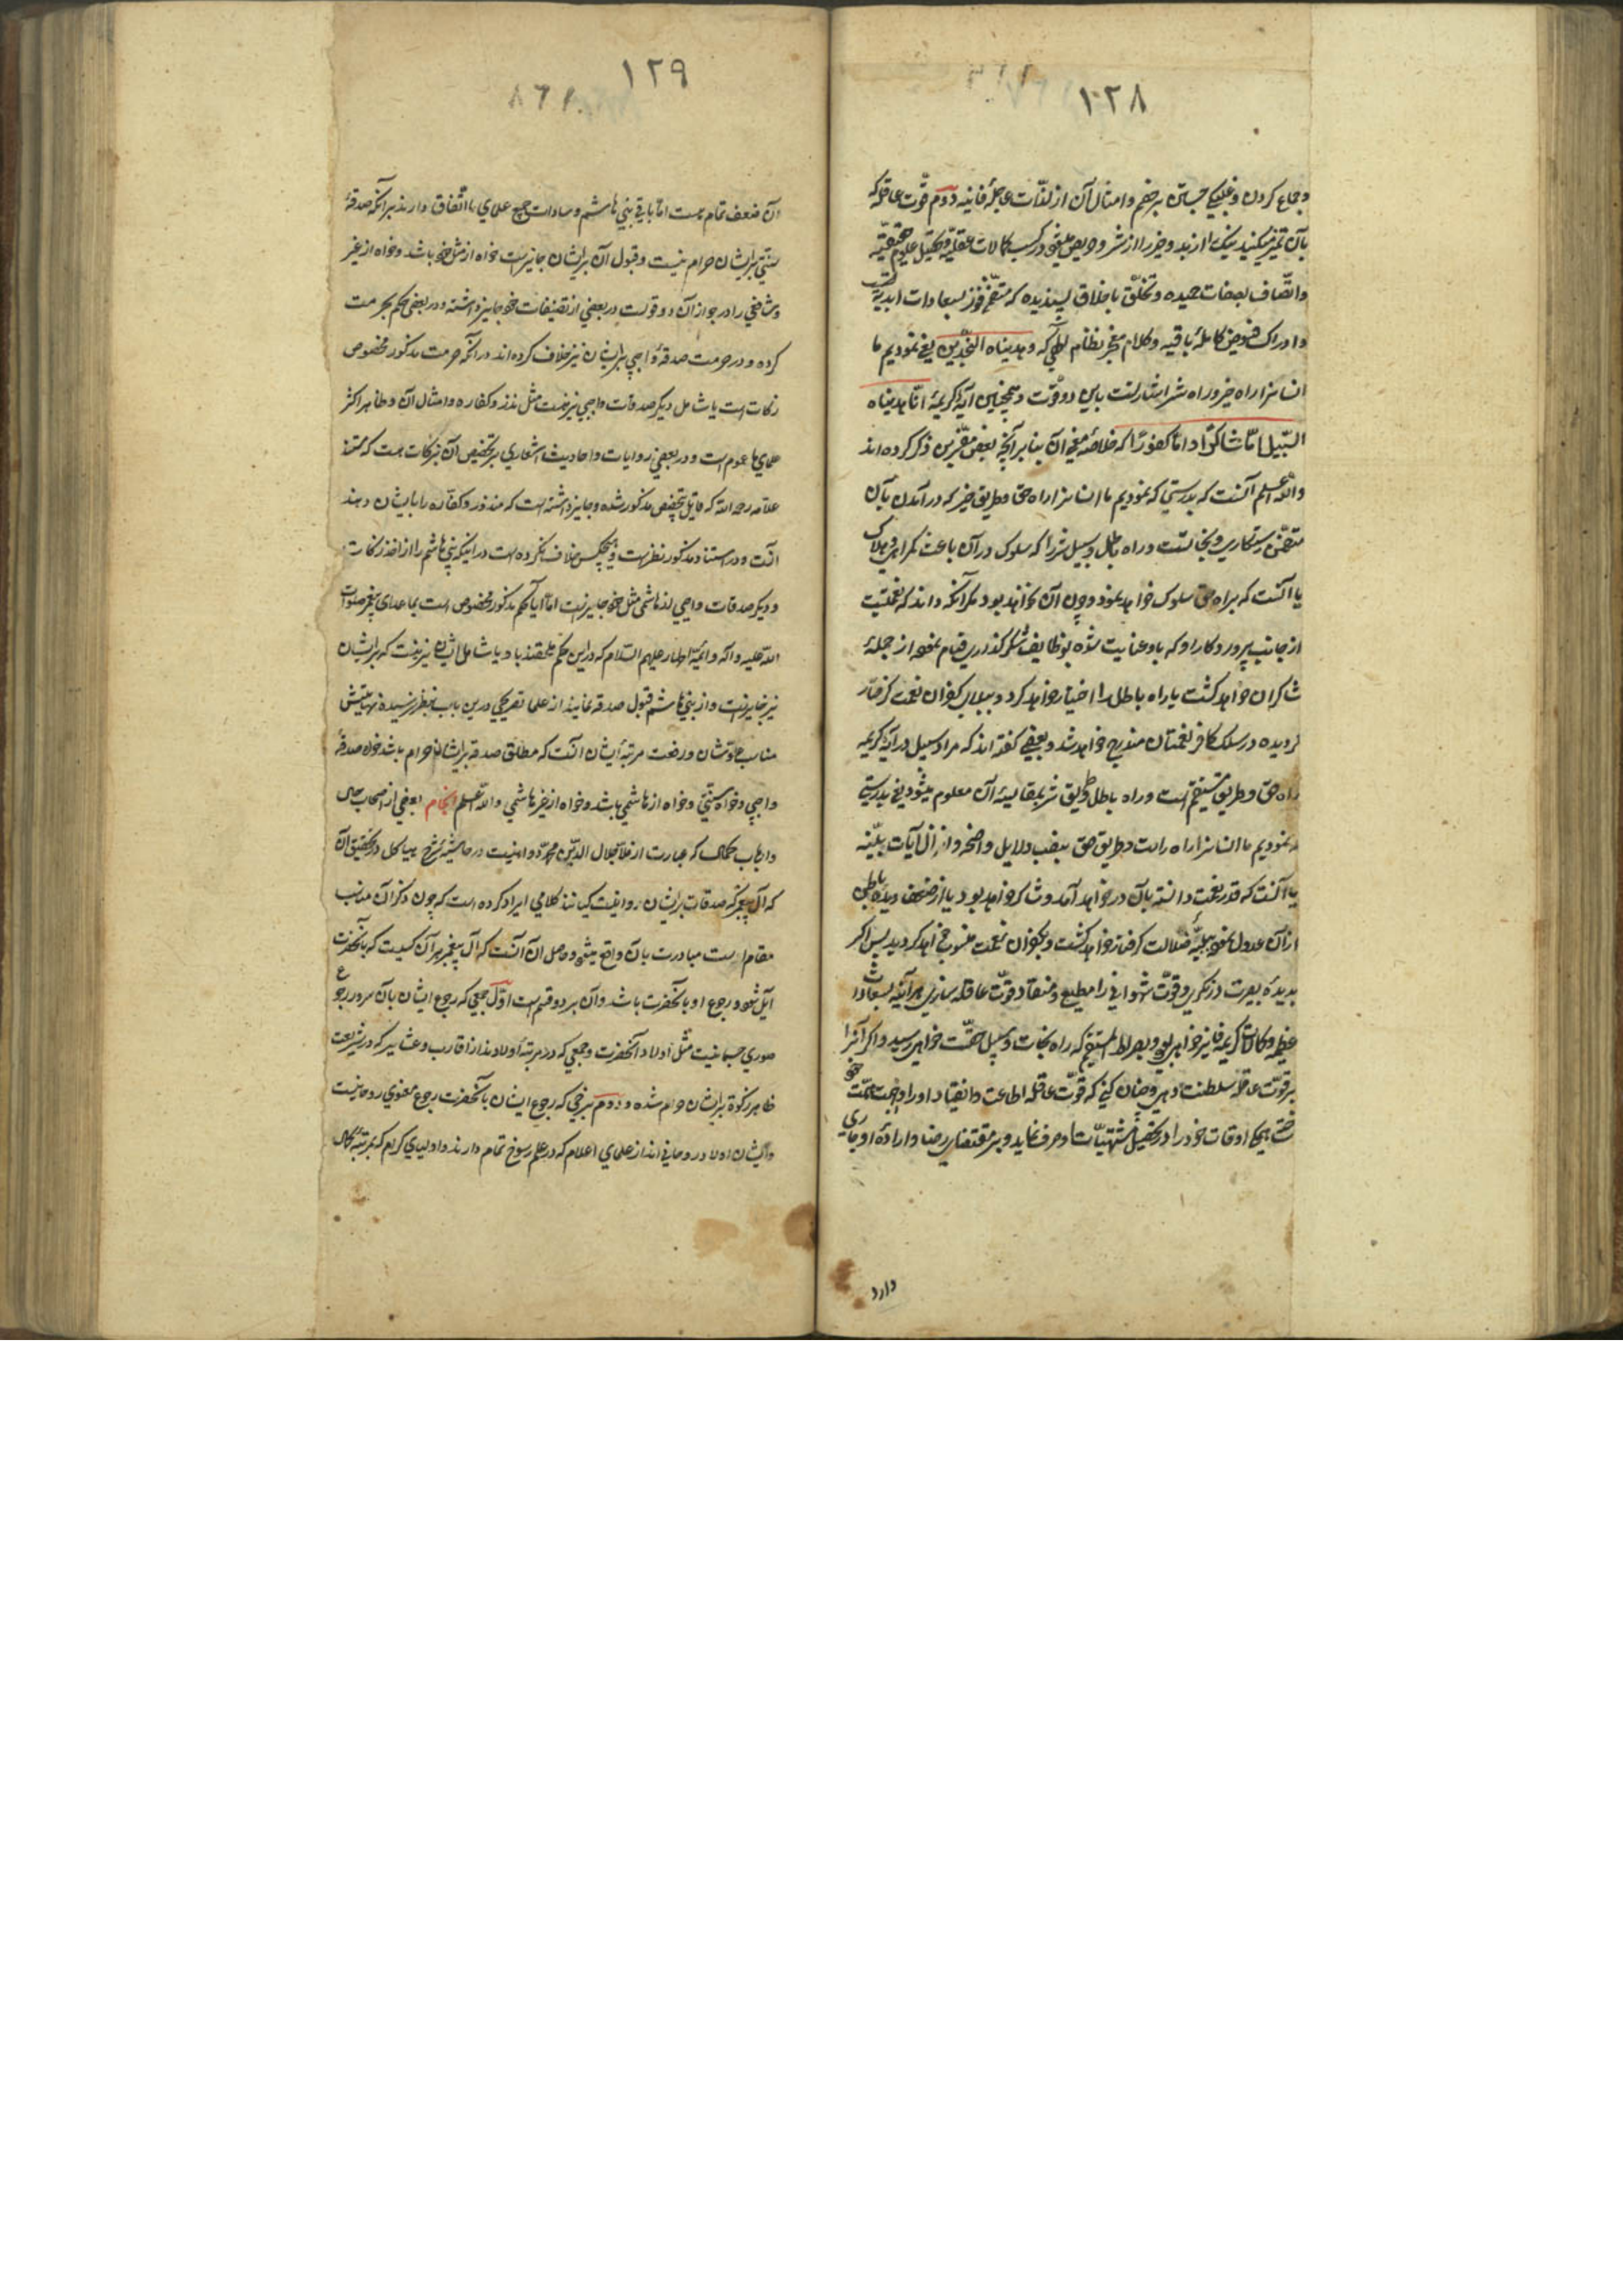 ۱۲۸
وجماع کردن و غلبگی جستن بر خصم و امثال آن از لذّات عاجلهٔ فانیه دوم قوّت عاقله که
بآن تمیز میکنید نیک را از بد و خیر را از شر و حریص میشود در کسب کمالات عقلیّه و تحصیل علوم حقیقیّه
واتّصاف بصفات حمیده و تخلّق باخلاق پسندیده که متضمّن فوز بسعادات ابدیّه
وادراک فیوض کاملهٔ باقیه و کلام معجز نظام الهی که وهدیناه النّجدین یعنی نمودیم ما
انسانرا راه خیر و راه شر اشارتست باین دو قوّت و همچنین آیهٔ کریمهٔ انّا هدیناه
السّبیل امّا شاکرًا و امّا کفورًا که خلاصهٔ معنی آن بنا بر آنچه بعض مفسّرین ذکر کرده اند
واللّه اعلم آنست که بدرستی که نمودیم ما انسانرا راه حق و طریق خیر که در آمدن بآن
متضمّن رستکاری و نجاتست و راه باطل و سبیل شر را که سلوک در آن باعث کمراهی و هلاک
یا آنست که براه حق سلوک خواهد نمود و چون آن نخواهد بود مکر آنکه داند که نعمتیست
از جانب پروردکار او که باو عنایت شده بوظایف شکر کذاری قیام نموده از جملهٔ
شاکران خواهد کشت یا راه باطل را اختیار خواهد کرد و ببلای کفران نعمت کرفتار
کردیده در سلک کافر نعمتان مندرج خواهد شد و بعضی کفته اند که مراد سبیل در آیهٔ کریمه
راه حق و طریق مستقیم است و راه باطل و طریق شر بمقایسهٔ آن معلوم میشود یعنی بدرستی
که نمودیم ما انسانرا راه راست و طریق حق بنصب دلایل واضحه و انزال آیات بیّنه
یا آنست که قدر نعمت دانسته بآن در خواهد آمد و شاکر خواهد بود یا از ضعف دیدهٔ باطن
از آن عدول نموده ببلیّهٔ ضلالت کرفتار خواهد کشت و بکفران نعمت منسوب خواهد کردید پس اکر
بدیدهٔ بصیرت در نکری و قوّت شهوانی را مطیع و منقاد قوّت عاقله سازی هر آینه بسعادات
عظیمه و مکانات کریمه فایز خواهی بود و بصراط المستقیم که راه نجات و سبیل حقّست خواهی رسید و اکر آنرا
بر قوّت عاقله سلطنت دهی و چنان کنی که قوّت عاقله اطاعت و انقیاد او را واجب همّت خود
ساخته همکی اوقات خود را در تحصیل مشتهیّات او صرف نماید و بر مقتضای رضا و ارادهٔ او جاری
دارد
۱۲۹
آن ضعف تمام هست امّا باقی بنی هاشم و سادات جمیع علمای ما اتّفاق دارند بر آنکه صدقهٔ
سنّتی بر ایشان حرام نیست و قبول آن بر ایشان جایزست خواه از مثل خود باشد و خواه از غیر
و شافعی را در جواز آن دو قولست در بعضی از تصنیفات خود جایز داشته و در بعضی حکم بحرمت
کرده و در حرمت صدقهٔ واجبی بر ایشان نیز خلاف کرده اند در آنکه حرمت مذکور مخصوص
زکات است یا شامل دیکر صدقات واجبی نیز هست مثل نذر و کفاره و امثال آن و ظاهر اکثر
علمای ما عموم است و در بعضی روایات و احادیث اشعاری بر تخصیص آن بزکات هست که مستند
علامه رحمه اللّه که قایل بتخصیص مذکور شده و جایز داشته است که منذور و کفّاره را بایشان دهند
آنست و در استناد مذکور نظرست و هیچکس خلاف نکرده است در اینکه بنی هاشم را از اخذ زکات
و دیکر صدقات واجبی از هاشمی مثل خود جایزست امّا آیا حکم مذکور مخصوص است بما عدای پیغمبر صلوات
اللّه علیه و آله و ائمّهٔ اطهار علیهم السّلام که در این حکم ملحقند باو یا شامل ایشان نیز هست که بر ایشان
نیز جایزست و از بنی هاشم قبول صدقه نمایند از علما تصریحی درین باب بنظر نرسیده نهایتش
مناسب علوّ شان و رفعت مرتبهٔ ایشان آنست که مطلق صدقه بر ایشان حرام باشد خواه صدقهٔ
واجبی و خواه سنّتی و خواه از هاشمی باشد و خواه از غیر هاشمی واللّه اعلم انجام بعضی از اصحاب حال
وارباب کمال که عبارت از ملا جلال الدّین محمّد دوانیست در حاشیهٔ شرح هیاکل در تحقیق آن
که آل پیغمبر که صدقات بر ایشان روا نیست کیانند کلامی ایراد کرده است که چون ذکر آن مناسب
مقام است مبادرت بآن واقع میشود و حاصل آن آنست که آل پیغمبر هر آن کسیست که بآنحضرت
آیل شود و رجوع او بآنحضرت باشد و آن بر دو قسم است اوّل جمعی که رجوع ایشان بآن سرور رجوع
صوری جسمانیست مثل اولاد آنحضرت و جمعی که در مرتبهٔ اولادند از اقارب و عشایر که در شریعت
ظاهر زکوة بر ایشان حرام شده و دوم بر جمعی که رجوع ایشان بآنحضرت رجوع معنوی روحانیست
و ایشان اولاد روحانی اند از علمای اعلام که در علم رسوخ تمام دارند و اولیای کرام که بمرتبهٔ کمال